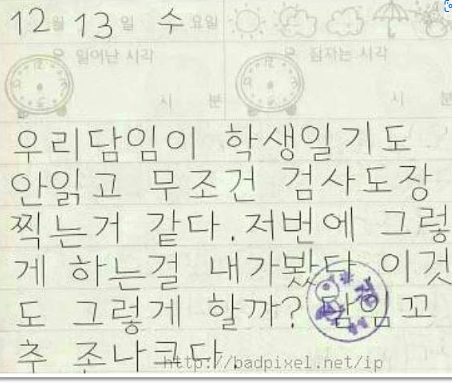 12월 13일 수요일
일어난 시각 잠자는 시각
시 분 시 분
우리담임이 학생일기도
안읽고 무조건 검사도장
찍는거 같다.저번에 그렇
게 하는걸 내가봤다 이것
도 그렇게 할까? 담임꼬
추 존나크다.
http://badpixel.net/ip